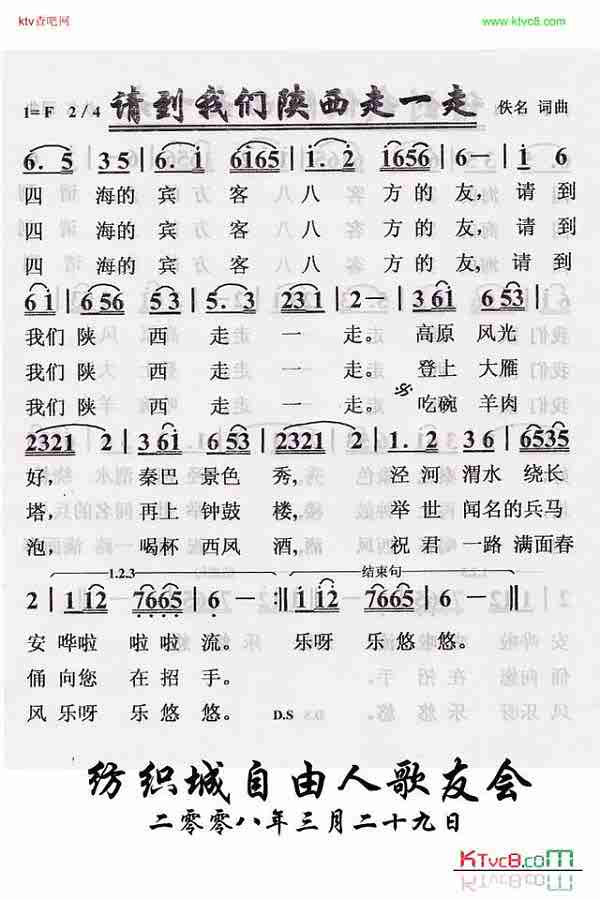 ktv查吧网
www.ktvc8.com
1=F 2/4 请到我们陕西走一走 佚名 词曲
6. 5 3 5 | 6. i 6165 | i. 2 1656 | 6 — | i 6
四 海的 宾 客 八 八 方 的 友, 请 到
四 海的 宾 客 八 八 方 的 友, 请 到
四 海的 宾 客 八 八 方 的 友, 请 到
6 i | 6 56 5 3 | 5. 3 | 23 1 | 2 — | 3 61 6 53 |
我们 陕 西 走 一 走。 高原 风光
我们 陕 西 走 一 走。 登上 大雁
我们 陕 西 走 一 走。 吃碗 羊肉
2321 2 | 3 61 6 53 | 2321 2 | 1. 2 3 6 | 6535
好, 秦巴 景色 秀, 泾 河 渭水 绕长
塔, 再上 钟鼓 楼, 举 世 闻名的 兵马
泡, 喝杯 西风 酒, 祝 君 一路 满面春
1.2.3 结束句
2 | i i2 | 7665 | 6 — :‖ i i2 | 7665 | 6 — ‖
安 哗啦 啦啦 流。 乐呀 乐 悠悠。
俑 向您 在 招 手。
风 乐呀 乐 悠 悠。 D.S
纺织城自由人歌友会
二零零八年三月二十九日
KTvc8.com